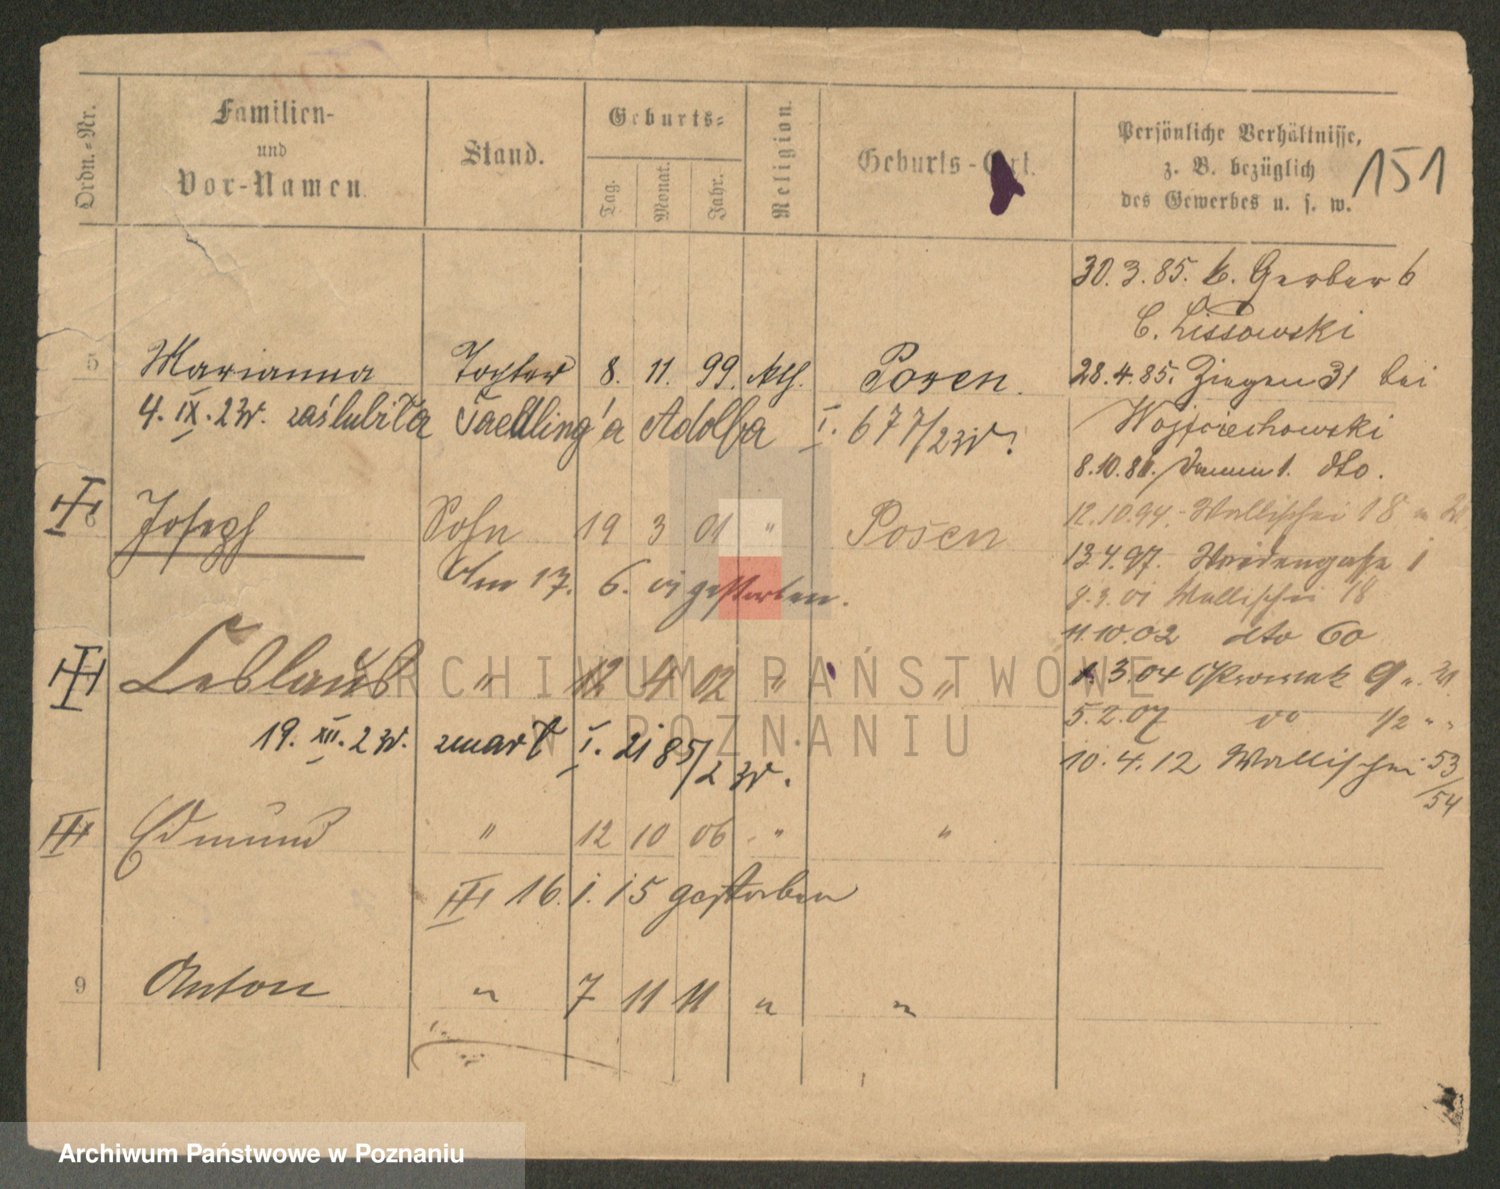 Ordn.-Nr.
Familien-
und
Vor-Namen.
Stand.
Geburts-
Tag.
Monat.
Jahr.
Religion.
Geburts-Ort.
Persönliche Verhältnisse,
z. B. bezüglich
des Gewerbes u. s. w.
151
30. 3. 85. b. Gerber 6
C. Lissowski
5 Marianna Tochter 8. 11. 99. kth. Posen.
28. 4. 85. Ziegen 31 bei
4. IX. 23r. zaślubiła Taedling'a Adolfa I. 677/23r.
Wojciechowski
8. 10. 86. Damm 1. dto.
6 Joseph Sohn 19 3 01 " Posen
12. 10. 94. Wallischei 18
13. 4. 97. Weidengasse 1
Am 17. 6. 01 gestorben.
9. 3. 01 Wallischei 18
11. 10. 02 dto 60
Ceslaus " 12 4 02 " "
3. 04 9
5. 2. 07 do 1/2 " "
19. XII. 23r. zmarł I. 2185/23r.
10. 4. 12 Wallischei 53/54
Edmund " 12 10 06 " "
16. 1. 15 gestorben
9 Anton " 7 11 11 " "
ARCHIWUM PAŃSTWOWE
W POZNANIU
Archiwum Państwowe w Poznaniu